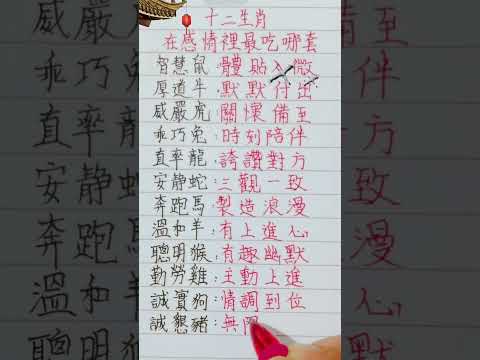 十二生肖
在感情裡最吃哪套
智慧鼠:體貼入微
厚道牛:默默付出
威嚴虎:關懷備至
乖巧兔:時刻陪伴
直率龍:誇讚對方
安静蛇:三觀一致
奔跑馬:製造浪漫
溫和羊:有上進心
聰明猴:有趣幽默
勤勞雞:主動上進
誠實狗:情調到位
誠懇豬:無